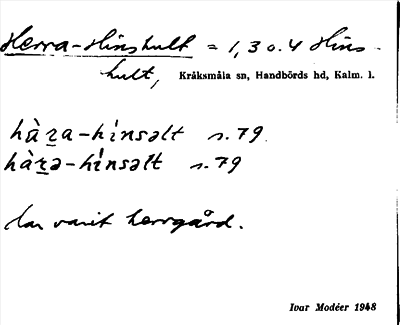 Herra-Hinshult = 1, 3 o. 4 Hins-
hult, Kråksmåla sn, Handbörds hd, Kalm. l.
hàr̲a-hínsəlt s. 79.
hàr̲ə-hínsəlt s. 79
har varit herrgård.
Ivar Modéer 1948